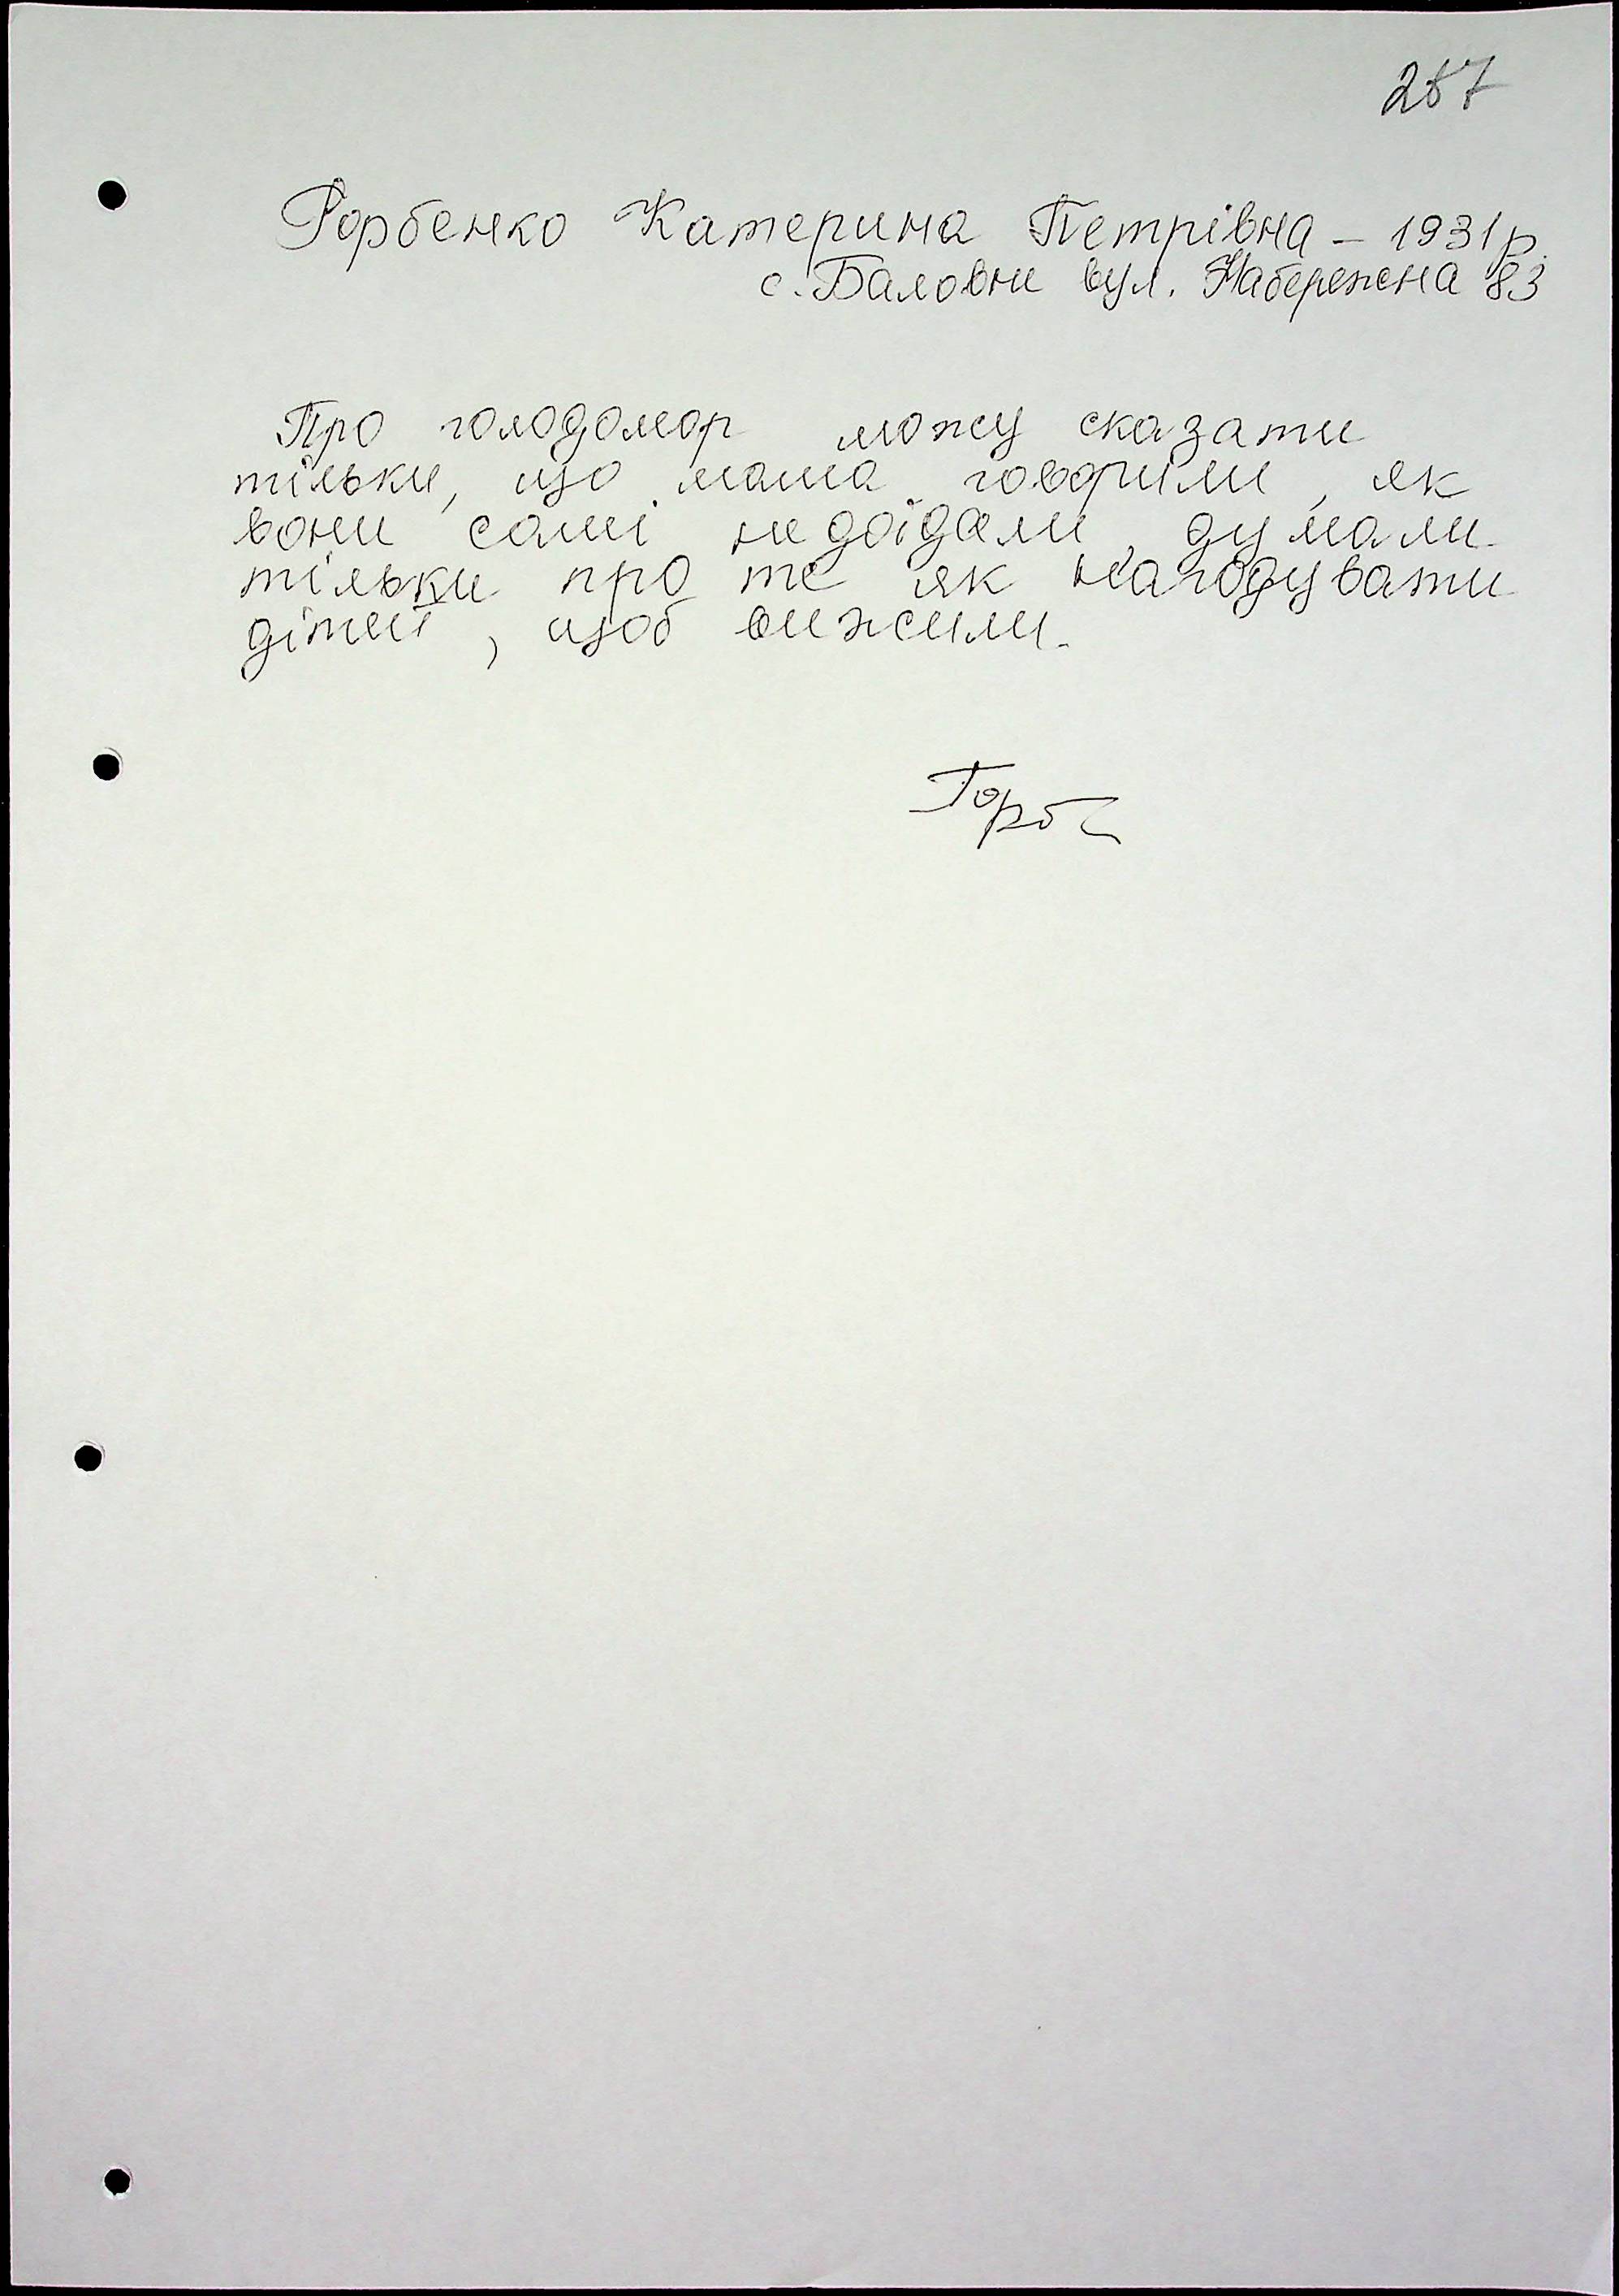 257
Горбенко Катерина Петрівна – 1931р.
с. Баловне вул. Набережна 83
Про голодомор можу сказати
тільки, що мама говорили, як
вони самі недоїдали, думали
тільки про те як нагодувати
дітей, щоб вижили.
Горб